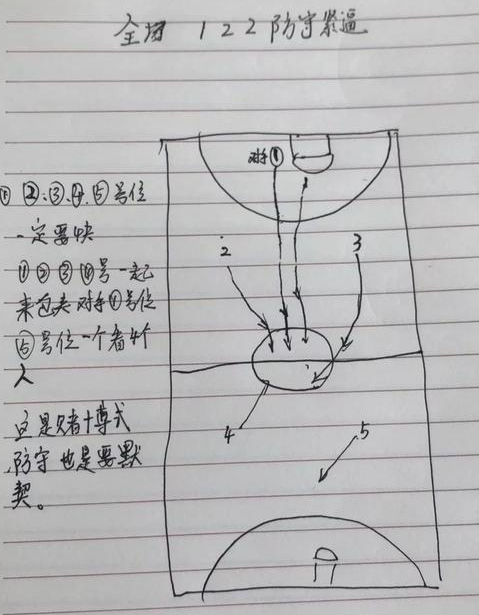 全场 1 2 2 防守紧逼
对手①
① ②.③.④.⑤号位
一定要快
①②③④号一起
来包夹对手①号位
⑤号位一个看4个
人
这是赌博式
防守也是要默
契。
2
3
4
5